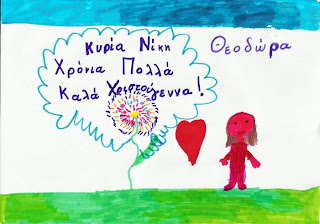 Κυρία Νίκη
Χρόνια Πολλά
Καλά Χριστούγεννα!
Θεοδώρα